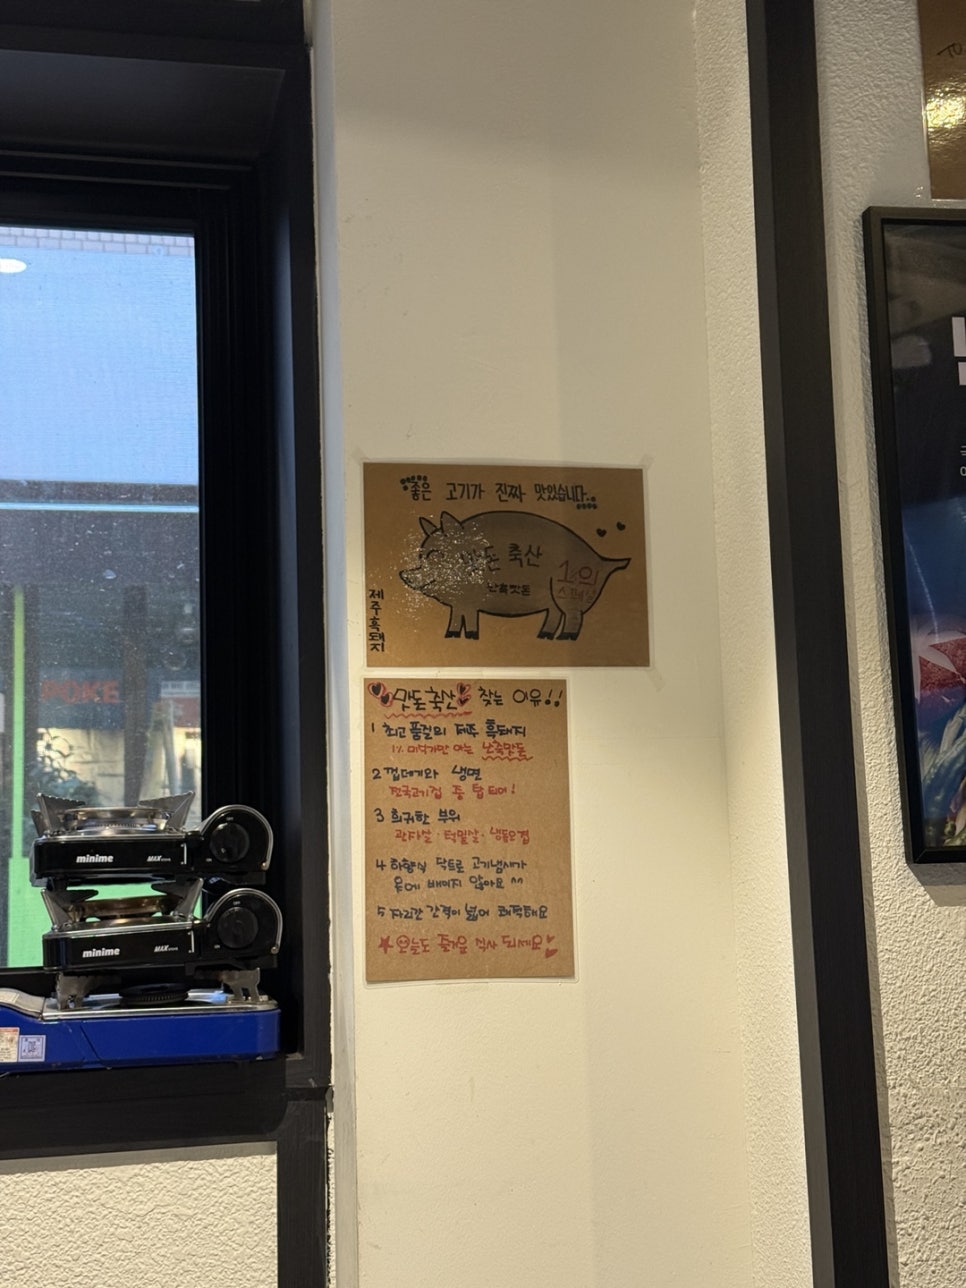 좋은 고기가 진짜 맛있습니다..
맛돈 축산
난축맛돈
1%의
제주흑돼지
맛돈축산 찾는 이유!!
1 최고품질의 제주 흑돼지
1% 미식가만 아는 난축맛돈
2 껍데기와 냉면
전국고기집 중 탑티어!
3 희귀한 부위
관자살·턱밑살·냉동오겹
4 하향식 닥트로 고기냄새가
옷에 배이지 않아요 ^^
5 자리간 간격이 넓어 쾌적해요
오늘도 즐거운 식사 되세요
POKE
minime MAX
minime MAX
TO